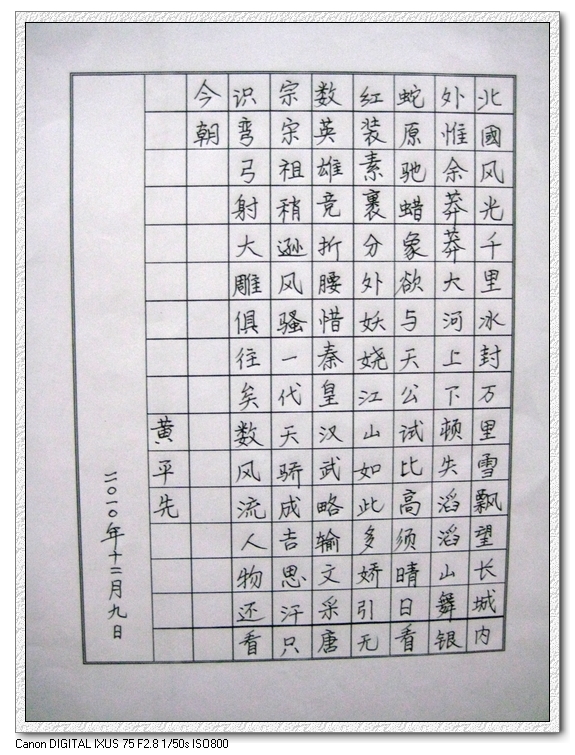 北國风光千里冰封万里雪飘望长城内
外惟余莽莽大河上下顿失滔滔山舞银
蛇原驰蜡象欲与天公试比高须晴日看
红装素裹分外妖娆江山如此多娇引无
数英雄竞折腰惜秦皇汉武略输文采唐
宗宋祖稍逊风骚一代天骄成吉思汗只
识弯弓射大雕俱往矣数风流人物还看
今朝
黄平先
二〇一〇年十二月九日
Canon DIGITAL IXUS 75 F2.8 1/50s ISO800